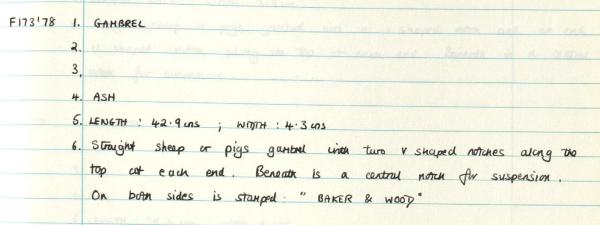 F173'78 1. GAMBREL
2.
3.
4. ASH
5. LENGTH : 42.9 cms ; WIDTH : 4.3 cms
6. Straight sheep or pigs gambrel with two V shaped notches along the
top at each end. Beneath is a central notch for suspension.
On both sides is stamped. "BAKER & WOOD"